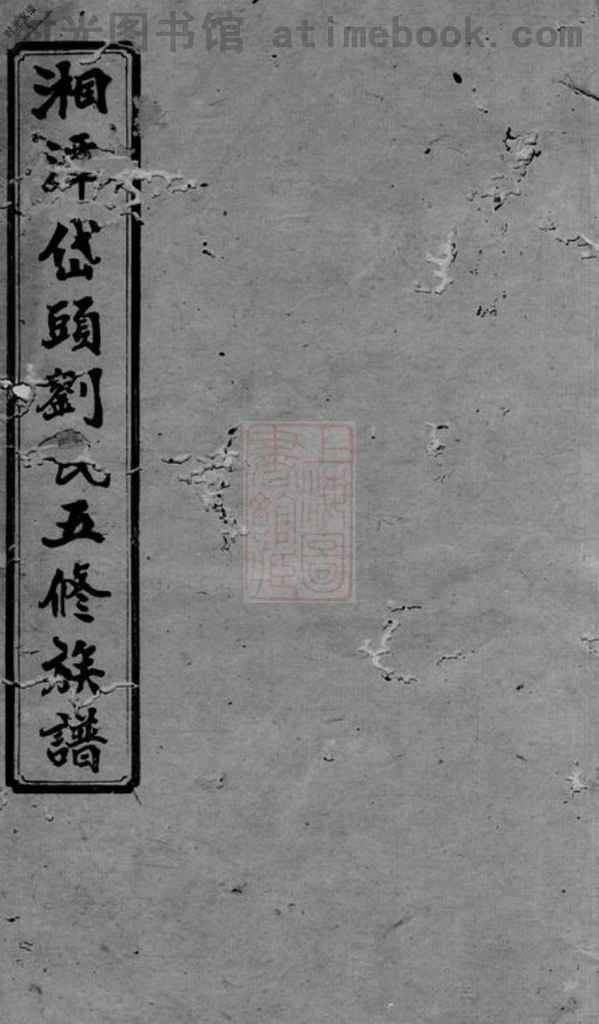 时光图书馆 atimebook.com
湘潭岱頭劉氏五修族譜